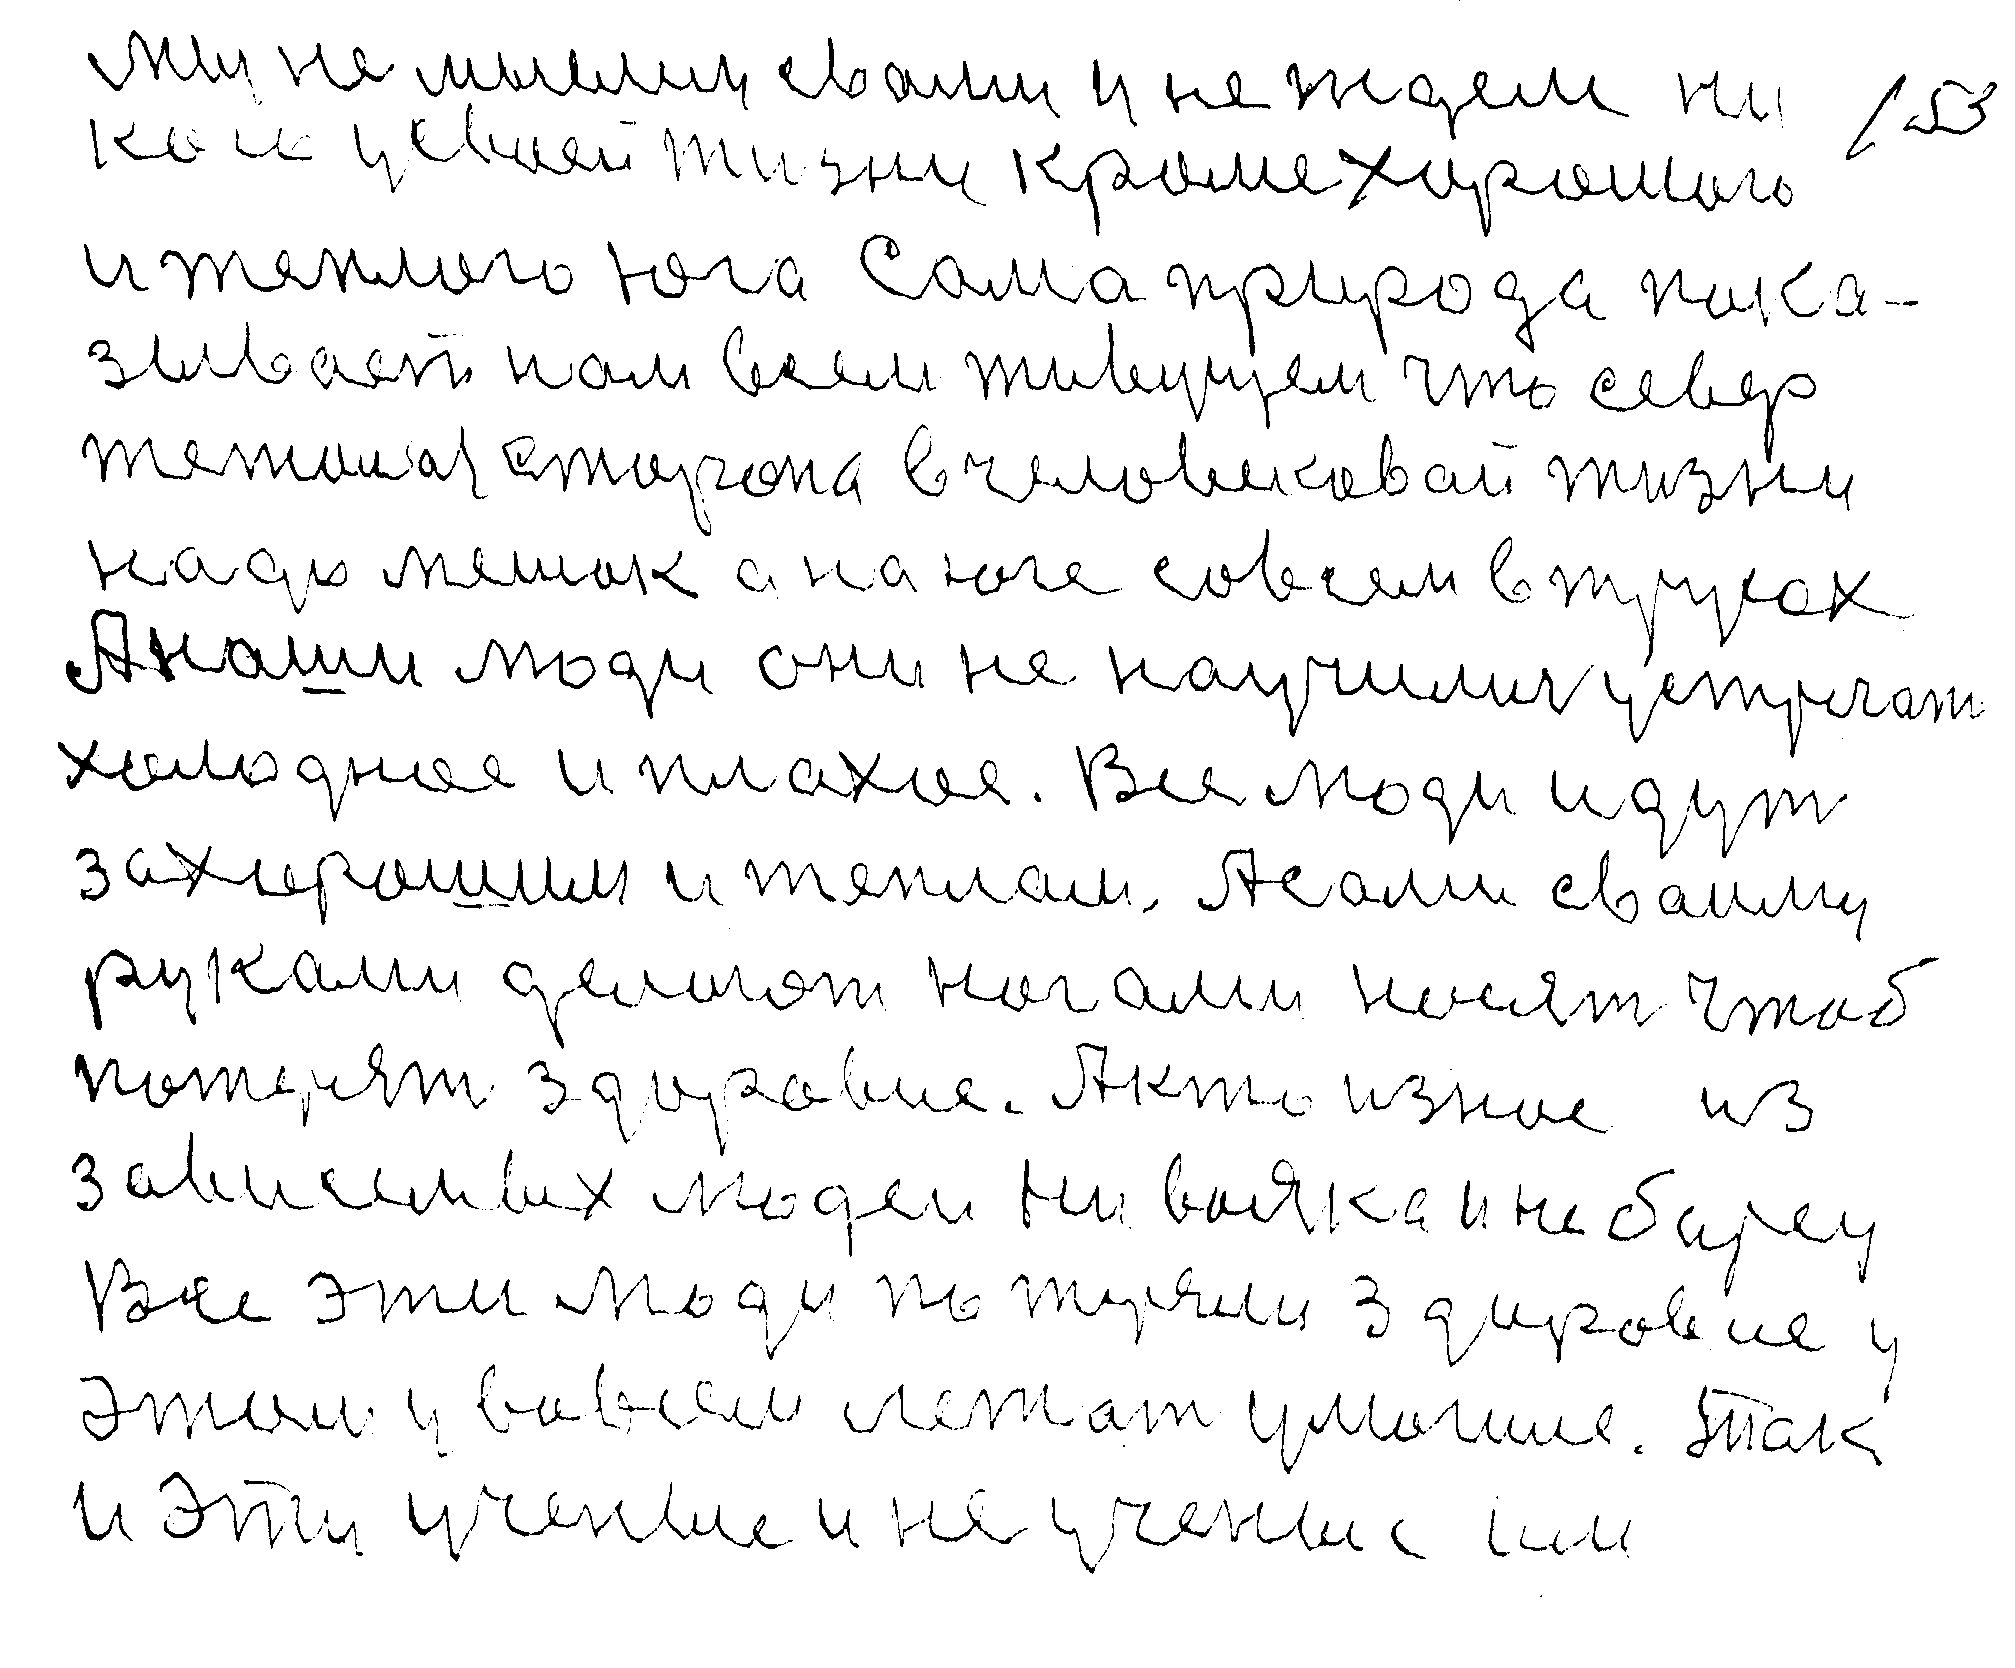 Мы не мыслим свами и не ждем ни 153
кои у своей жизни кроме хорошого
и теплого юга Сама природа пока-
зывает нам всем живущем что север
тяжолая сторона в человековай жизни
надо мешок а на юге совсем в трусах
А наши люди они не научились устречат
холодное и плахое. Все люди идут
за хорошим и теплам. А сами сваими
руками делают ногами носят чтоб
потерят здоровие. А кто из ное из
зависемых людеи ни вояка и не борец
Все эти люди потеряли здоровие и
этом и вовсем лежат умолие. Так
и эти учение и не учение им